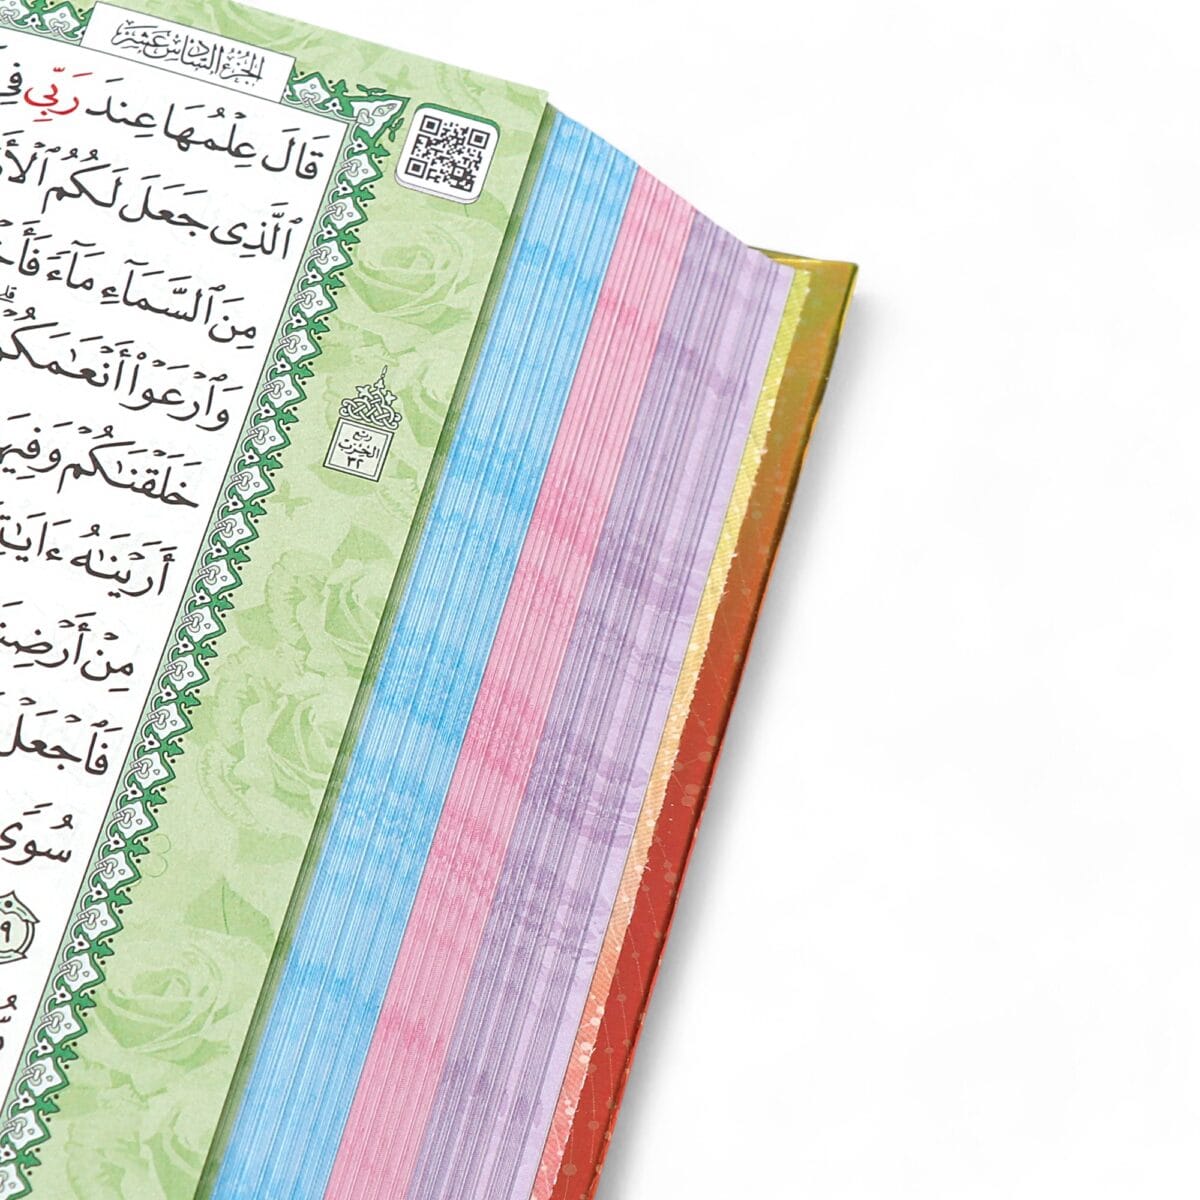 الجزء السادس عشر
قَالَ عِلْمُهَا عِندَ رَبِّي فِي
ٱلَّذِى جَعَلَ لَكُمُ ٱلْأَ
مِنَ ٱلسَّمَآءِ مَآءً فَأَخْ
وَٱرْعَوْا۟ أَنْعَـٰمَكُمْ
خَلَقْنَـٰكُمْ وَفِيهَ
أَرَيْنَـٰهُ ءَايَـٰتِ
مِنْ أَرْضِنَ
فَٱجْعَلْ
سُوًى
ربع
الحزب
٣٢